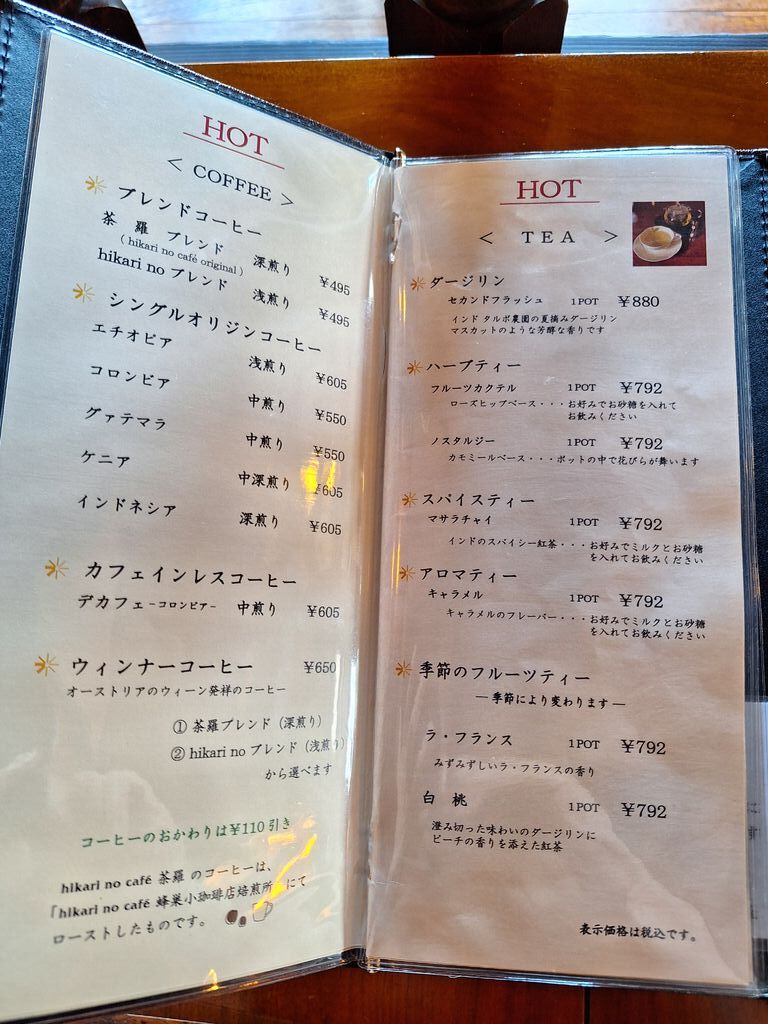 HOT
< COFFEE >
ブレンドコーヒー
茶 羅 ブレンド 深煎り ¥495
( hikari no café original )
hikari no ブレンド 浅煎り ¥495
シングルオリジンコーヒー
エチオピア 浅煎り ¥605
コロンビア 中煎り ¥550
グァテマラ 中煎り ¥550
ケニア 中深煎り ¥605
インドネシア 深煎り ¥605
カフェインレスコーヒー
デカフェ -コロンビア- 中煎り ¥605
ウィンナーコーヒー ¥650
オーストリアのウィーン発祥のコーヒー
① 茶羅ブレンド (深煎り)
② hikari no ブレンド (浅煎り)
から選べます
コーヒーのおかわりは¥110 引き
hikari no café 茶羅 のコーヒーは、
「hikari no café 蜂巣小珈琲店焙煎所」にて
ローストしたものです。
HOT
< TEA >
ダージリン
セカンドフラッシュ 1POT ¥880
インド タルボ農園の夏摘みダージリン
マスカットのような芳醇な香りです
ハーブティー
フルーツカクテル 1POT ¥792
ローズヒップベース・・・お好みでお砂糖を入れて
お飲みください
ノスタルジー 1POT ¥792
カモミールベース・・・ポットの中で花びらが舞います
スパイスティー
マサラチャイ 1POT ¥792
インドのスパイシー紅茶・・・お好みでミルクとお砂糖
を入れてお飲みください
アロマティー
キャラメル 1POT ¥792
キャラメルのフレーバー・・・お好みでミルクとお砂糖
を入れてお飲みください
季節のフルーツティー
― 季節により変わります ―
ラ・フランス 1POT ¥792
みずみずしいラ・フランスの香り
白 桃 1POT ¥792
澄み切った味わいのダージリンに
ピーチの香りを添えた紅茶
表示価格は税込です。